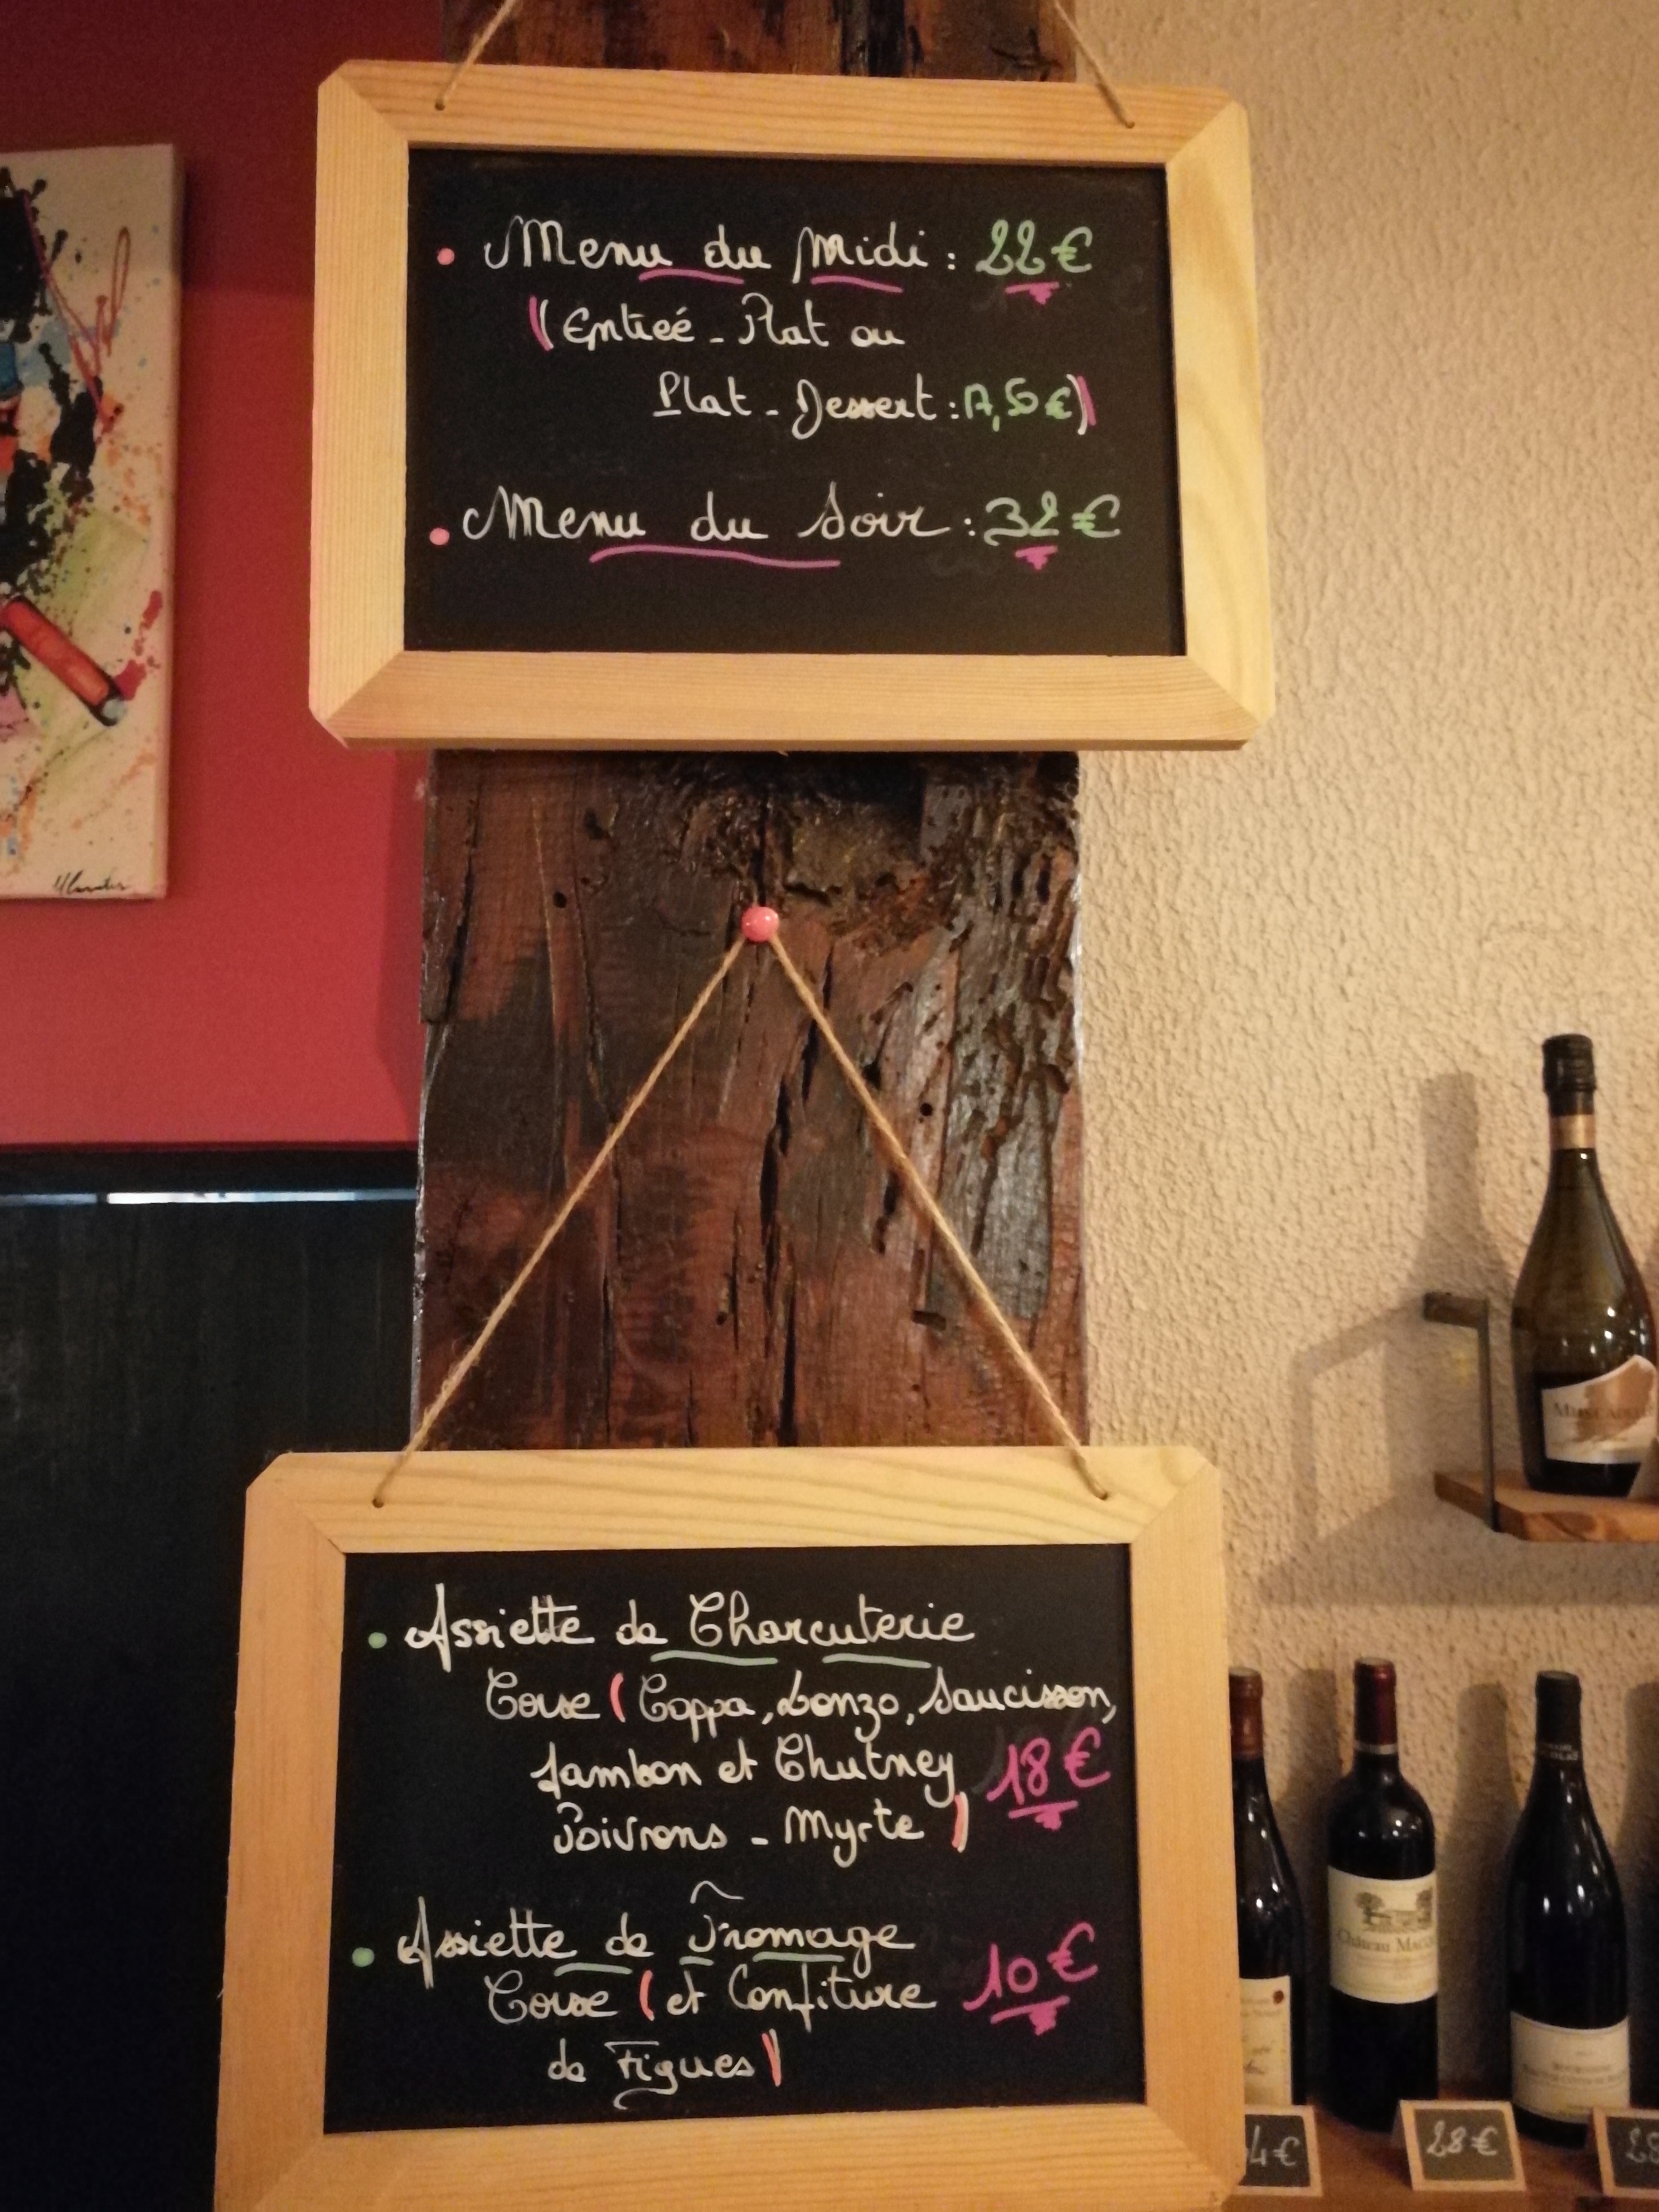 • Menu du Midi : 22€
(Entreé - Plat ou
Plat - Dessert : 17,50€)
• Menu du Soir : 32€
• Assiette de Charcuterie
Corse (Coppa, Lonzo, Saucisson,
Jambon et Chutney 18€
Poivrons - Myrte)
• Assiette de Fromage
Corse (et Confiture 10€
de Figues)
Château
4€
28€